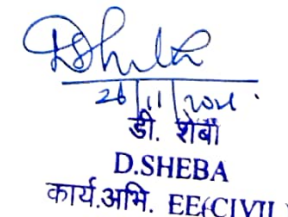 26/11/2021
डी. शेबा
D.SHEBA
कार्य.अभि. EE(CIVIL)